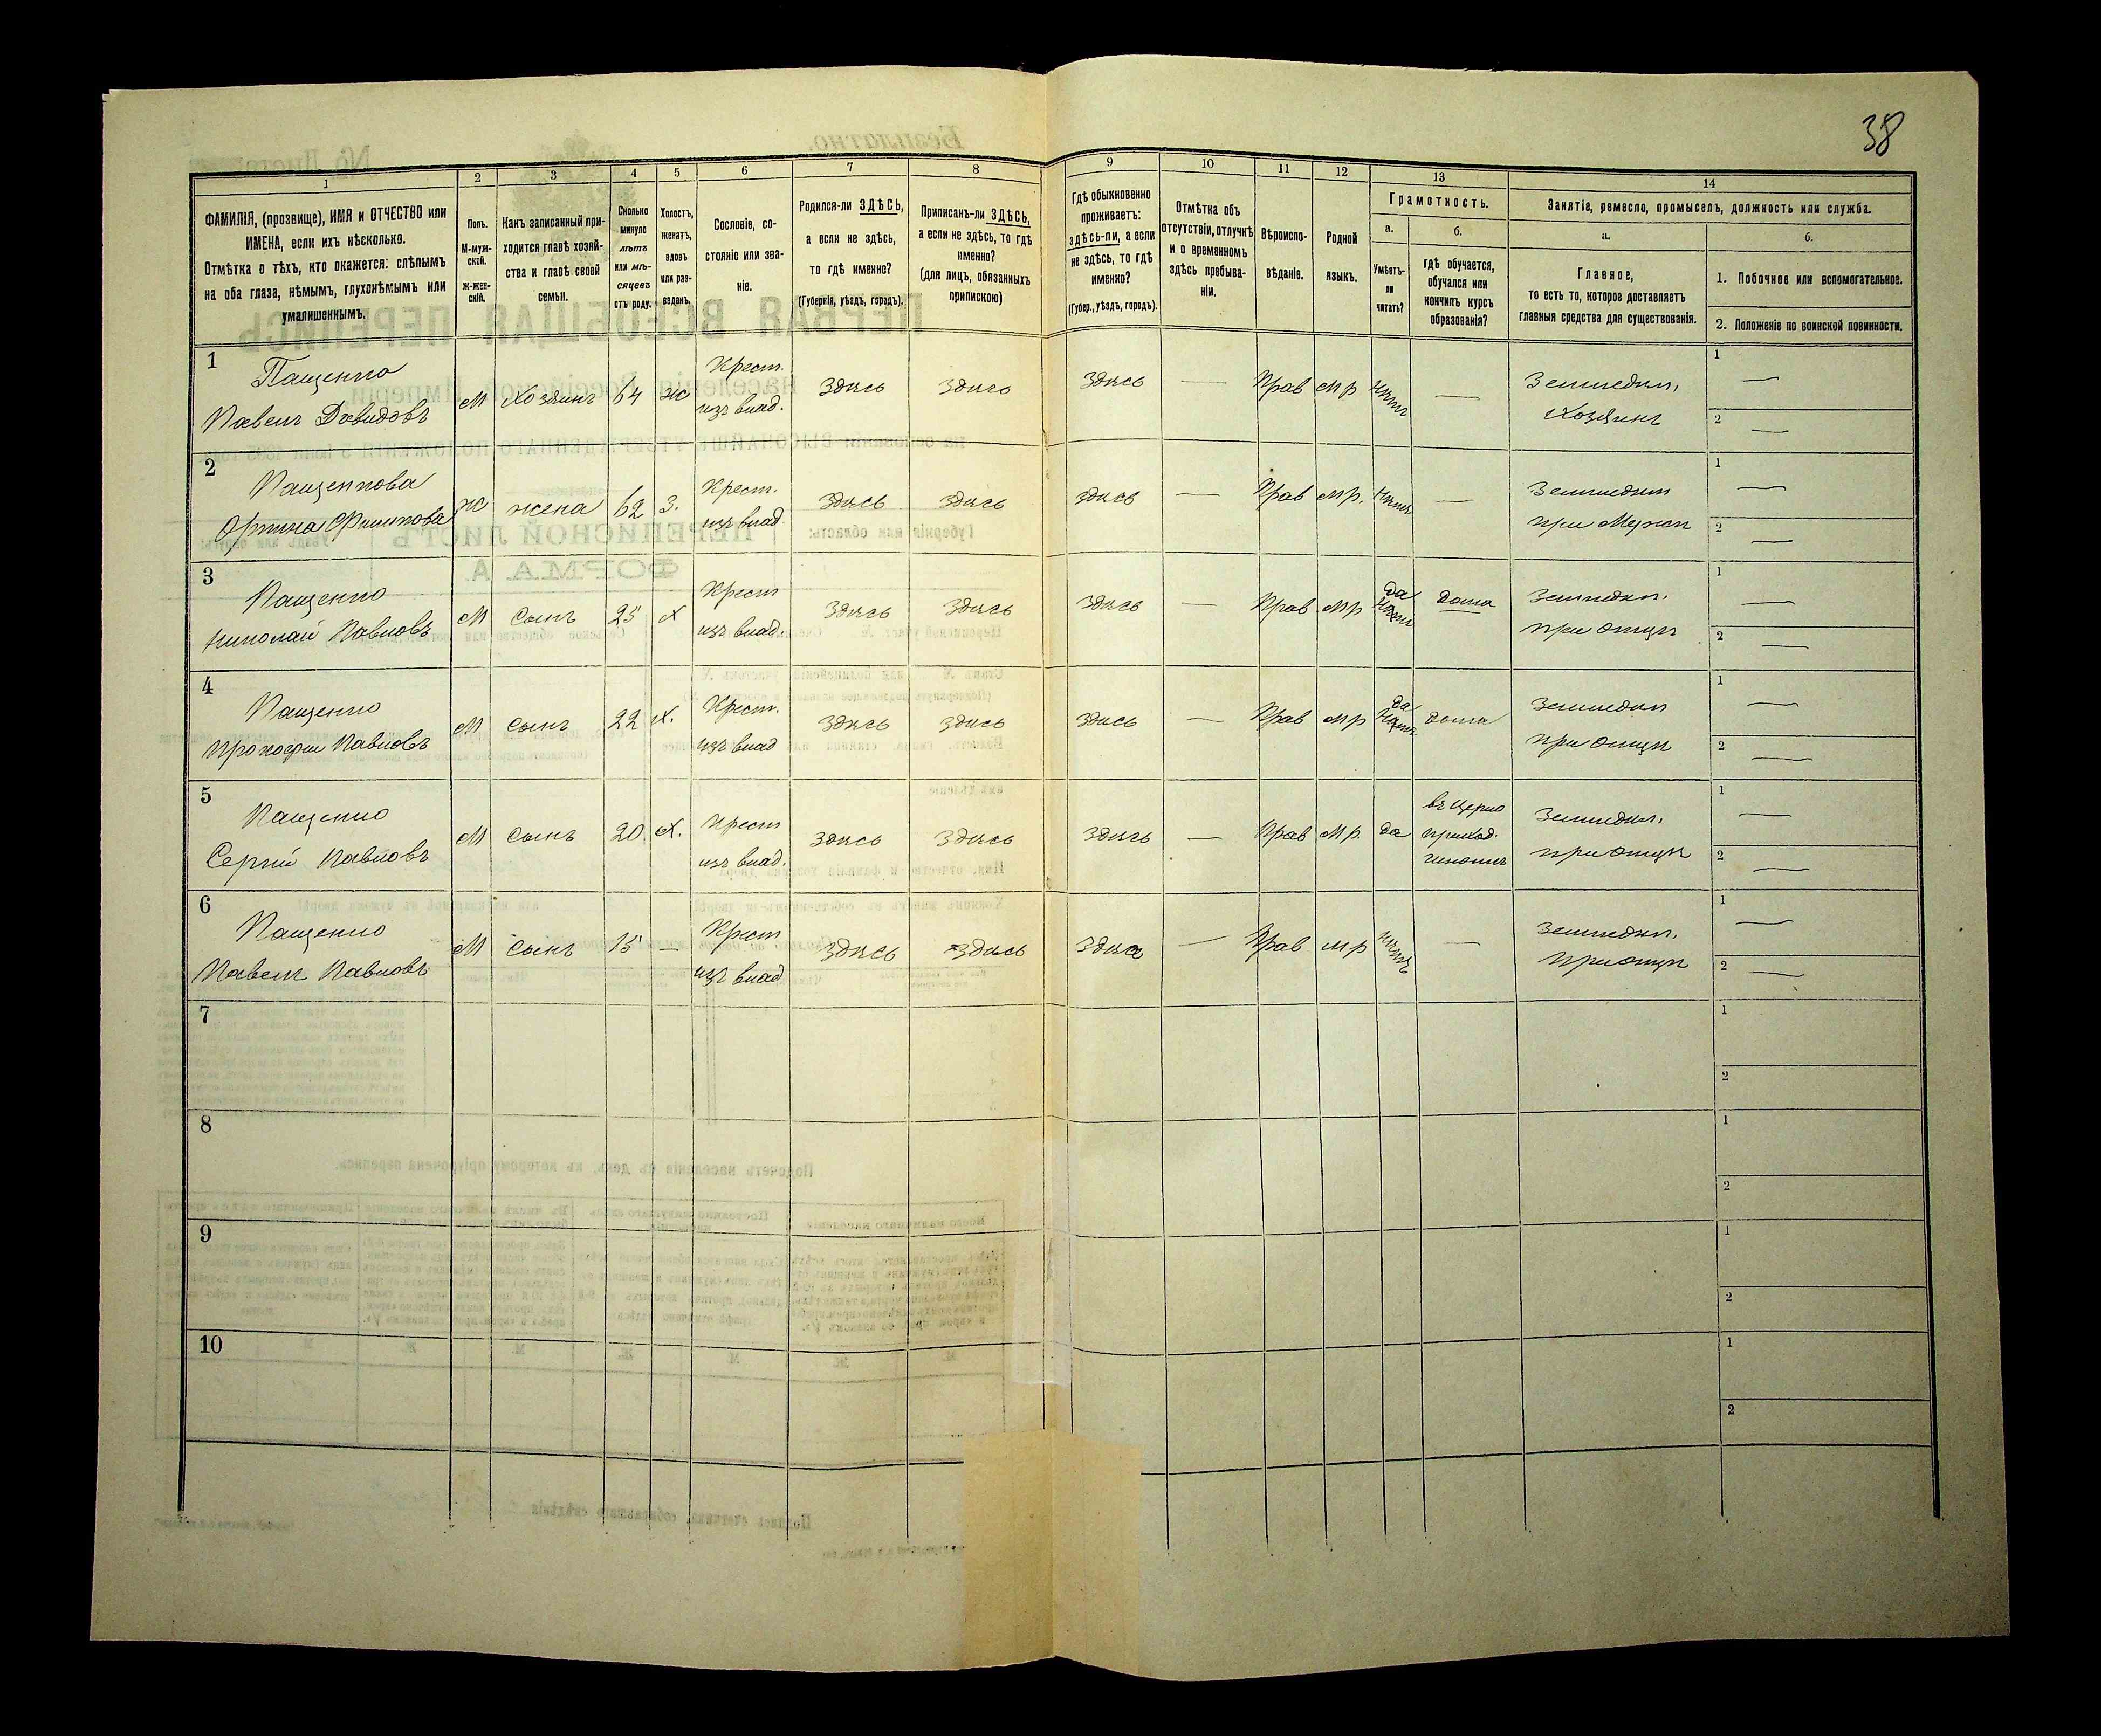 38
1
2
3
4
5
6
7
8
9
10
11
12
13
14
ФАМИЛІЯ, (прозвище), ИМЯ и ОТЧЕСТВО или
ИМЕНА, если ихъ нѣсколько.
Отмѣтка о тѣхъ, кто окажется: слѣпымъ
на оба глаза, нѣмымъ, глухонѣмымъ или
умалишеннымъ.
Полъ.
М-муж-
ской.
Ж-жен-
скій.
Какъ записанный при-
ходится главѣ хозяй-
ства и главѣ своей
семьи.
Сколько
минуло
лѣтъ
или мѣ-
сяцевъ
отъ роду.
Холостъ,
женатъ,
вдовъ
или раз-
веденъ.
Сословіе, со-
стояніе или зва-
ніе.
Родился-ли ЗДѢСЬ,
а если не здѣсь,
то гдѣ именно?
(Губернія, уѣздъ, городъ).
Приписанъ-ли ЗДѢСЬ,
а если не здѣсь, то гдѣ
именно?
(для лицъ, обязанныхъ
припискою)
Гдѣ обыкновенно
проживаетъ:
здѣсь-ли, а если
не здѣсь, то гдѣ
именно?
(Губер., уѣздъ, городъ).
Отмѣтка объ
отсутствіи, отлучкѣ
и о временномъ
здѣсь пребыва-
ніи.
Вѣроиспо-
вѣданіе.
Родной
языкъ.
Грамотность.
а.
Умѣетъ-
ли
читать?
б.
Гдѣ обучается,
обучался или
кончилъ курсъ
образованія?
Занятіе, ремесло, промыселъ, должность или служба.
а.
Главное,
то есть то, которое доставляетъ
главныя средства для существованія.
б.
1. Побочное или вспомогательное.
2. Положеніе по воинской повинности.
1
Пащенко
Павелъ Давидовъ
М
Хозяинъ
64
ж
Крест.
изъ влад.
Здѣсь
Здѣсь
Здѣсь
—
Прав
М р
Нѣтъ
—
Земледѣл.
Хозяинъ
1 —
2 —
2
Пащенкова
Ж
жена
62
З.
Крест.
изъ влад.
Здѣсь
Здѣсь
Здѣсь
—
Прав
М р.
Нѣтъ
—
Земледѣл
при Мужѣ
1 —
2 —
3
Пащенко
Николай Павловъ
М
Сынъ
25
Х
Крест
изъ влад.
Здѣсь
Здѣсь
Здѣсь
—
Прав
М р
да
Нѣтъ
дома
Земледѣл.
при отцѣ
1 —
2 —
4
Пащенко
Прокофій Павловъ
М
Сынъ
22
Х.
Крест.
изъ влад
Здѣсь
Здѣсь
Здѣсь
—
Прав
М р
да
Нѣтъ
дома
Земледѣл
при отцѣ
1 —
2 —
5
Пащенко
Сергій Павловъ
М
Сынъ
20.
Х.
Крест
изъ влад.
Здѣсь
Здѣсь
Здѣсь
—
Прав
М р.
да
въ церко
приход.
школѣ
Земледѣл.
при отцѣ
1 —
2 —
6
Пащенко
Павелъ Павловъ
М
Сынъ
15
—
Крест
изъ влад
Здѣсь
Здѣсь
Здѣсь
—
Прав
М р
Нѣтъ
—
Земледѣл.
при отцѣ
1 —
2 —
7
1
2
8
1
2
9
1
2
10
1
2